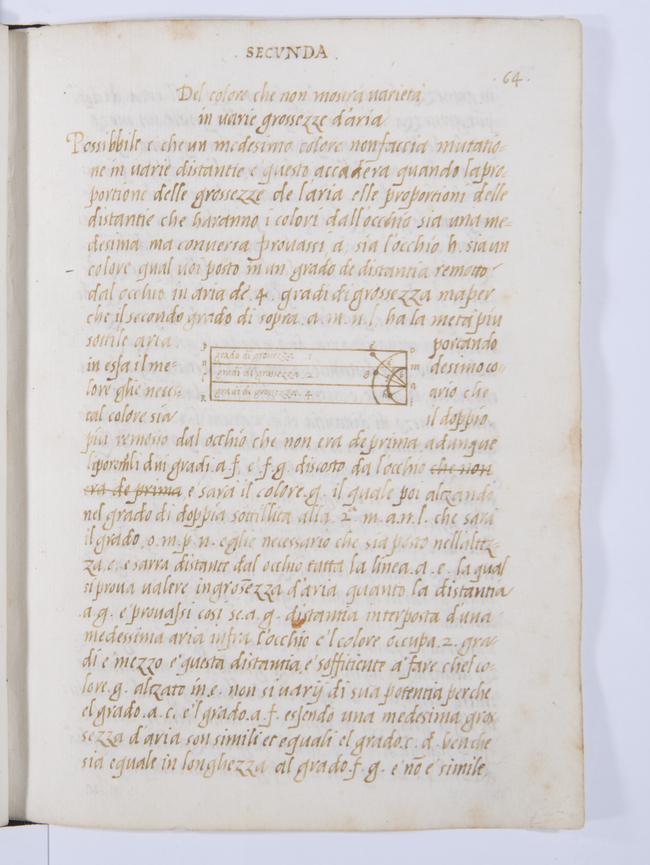 SECVNDA
64.
Del colore che non mostra varietà
in varie grossezze d'aria
Possibbile e. che un medesimo colore non faccia mutatio=
ne in varie distantie e questo accadera quando la pro=
portione delle grossezze de l'aria elle proportioni delle
distantie che haranno i colori dall'occhio sia una me=
desima ma conversa provassi. a. sia l'occhio. h. sia un
colore qual voi posto in un grado de distantia remotto
dal occhio in aria de. 4. gradi di grossezza ma per
che il secondo grado di sopra. a. m. n. l. ha la metà piu
sottile aria portando
in essa il me= desimo co=
lore ghe neces= ario che
tal colore sia il doppio
grado di grossezza. 1
gradi di grossezza. 2
gradi di grossezza. 4
piu remosso dal occhio che non era de prima adunque
li porremli dui gradi. a. f. e. f. g. discosto da l'occhio che non
era de prima, e sara il colore. g. il quale poi alzando
nel grado di doppia sottilità alla. 2ª m. a. n. l. che sarà
il grado. o. m. p. n. eglie necessario che sia posto nell'altez=
za. e. e sarra distante dal occhio tutta la linea. a. e. la qual
si prova valere in grossezza d'aria quanto la distantia
.a g. e provassi cosi se. a. g. distantia interposta d'una
medessima aria infra l'occhio e'l colore occupa. 2. gra=
di e mezzo e questa distantia e soffitiente a fare chel co=
lore. g. alzato in. e. non si varij di sua potentia perche
el grado. a. c. e'l grado. a. f. essendo una medesima gros
sezza d'aria son simili et equali el grado. c. d. benche
sia equale in longhezza al grado. f. g. e nō e simile